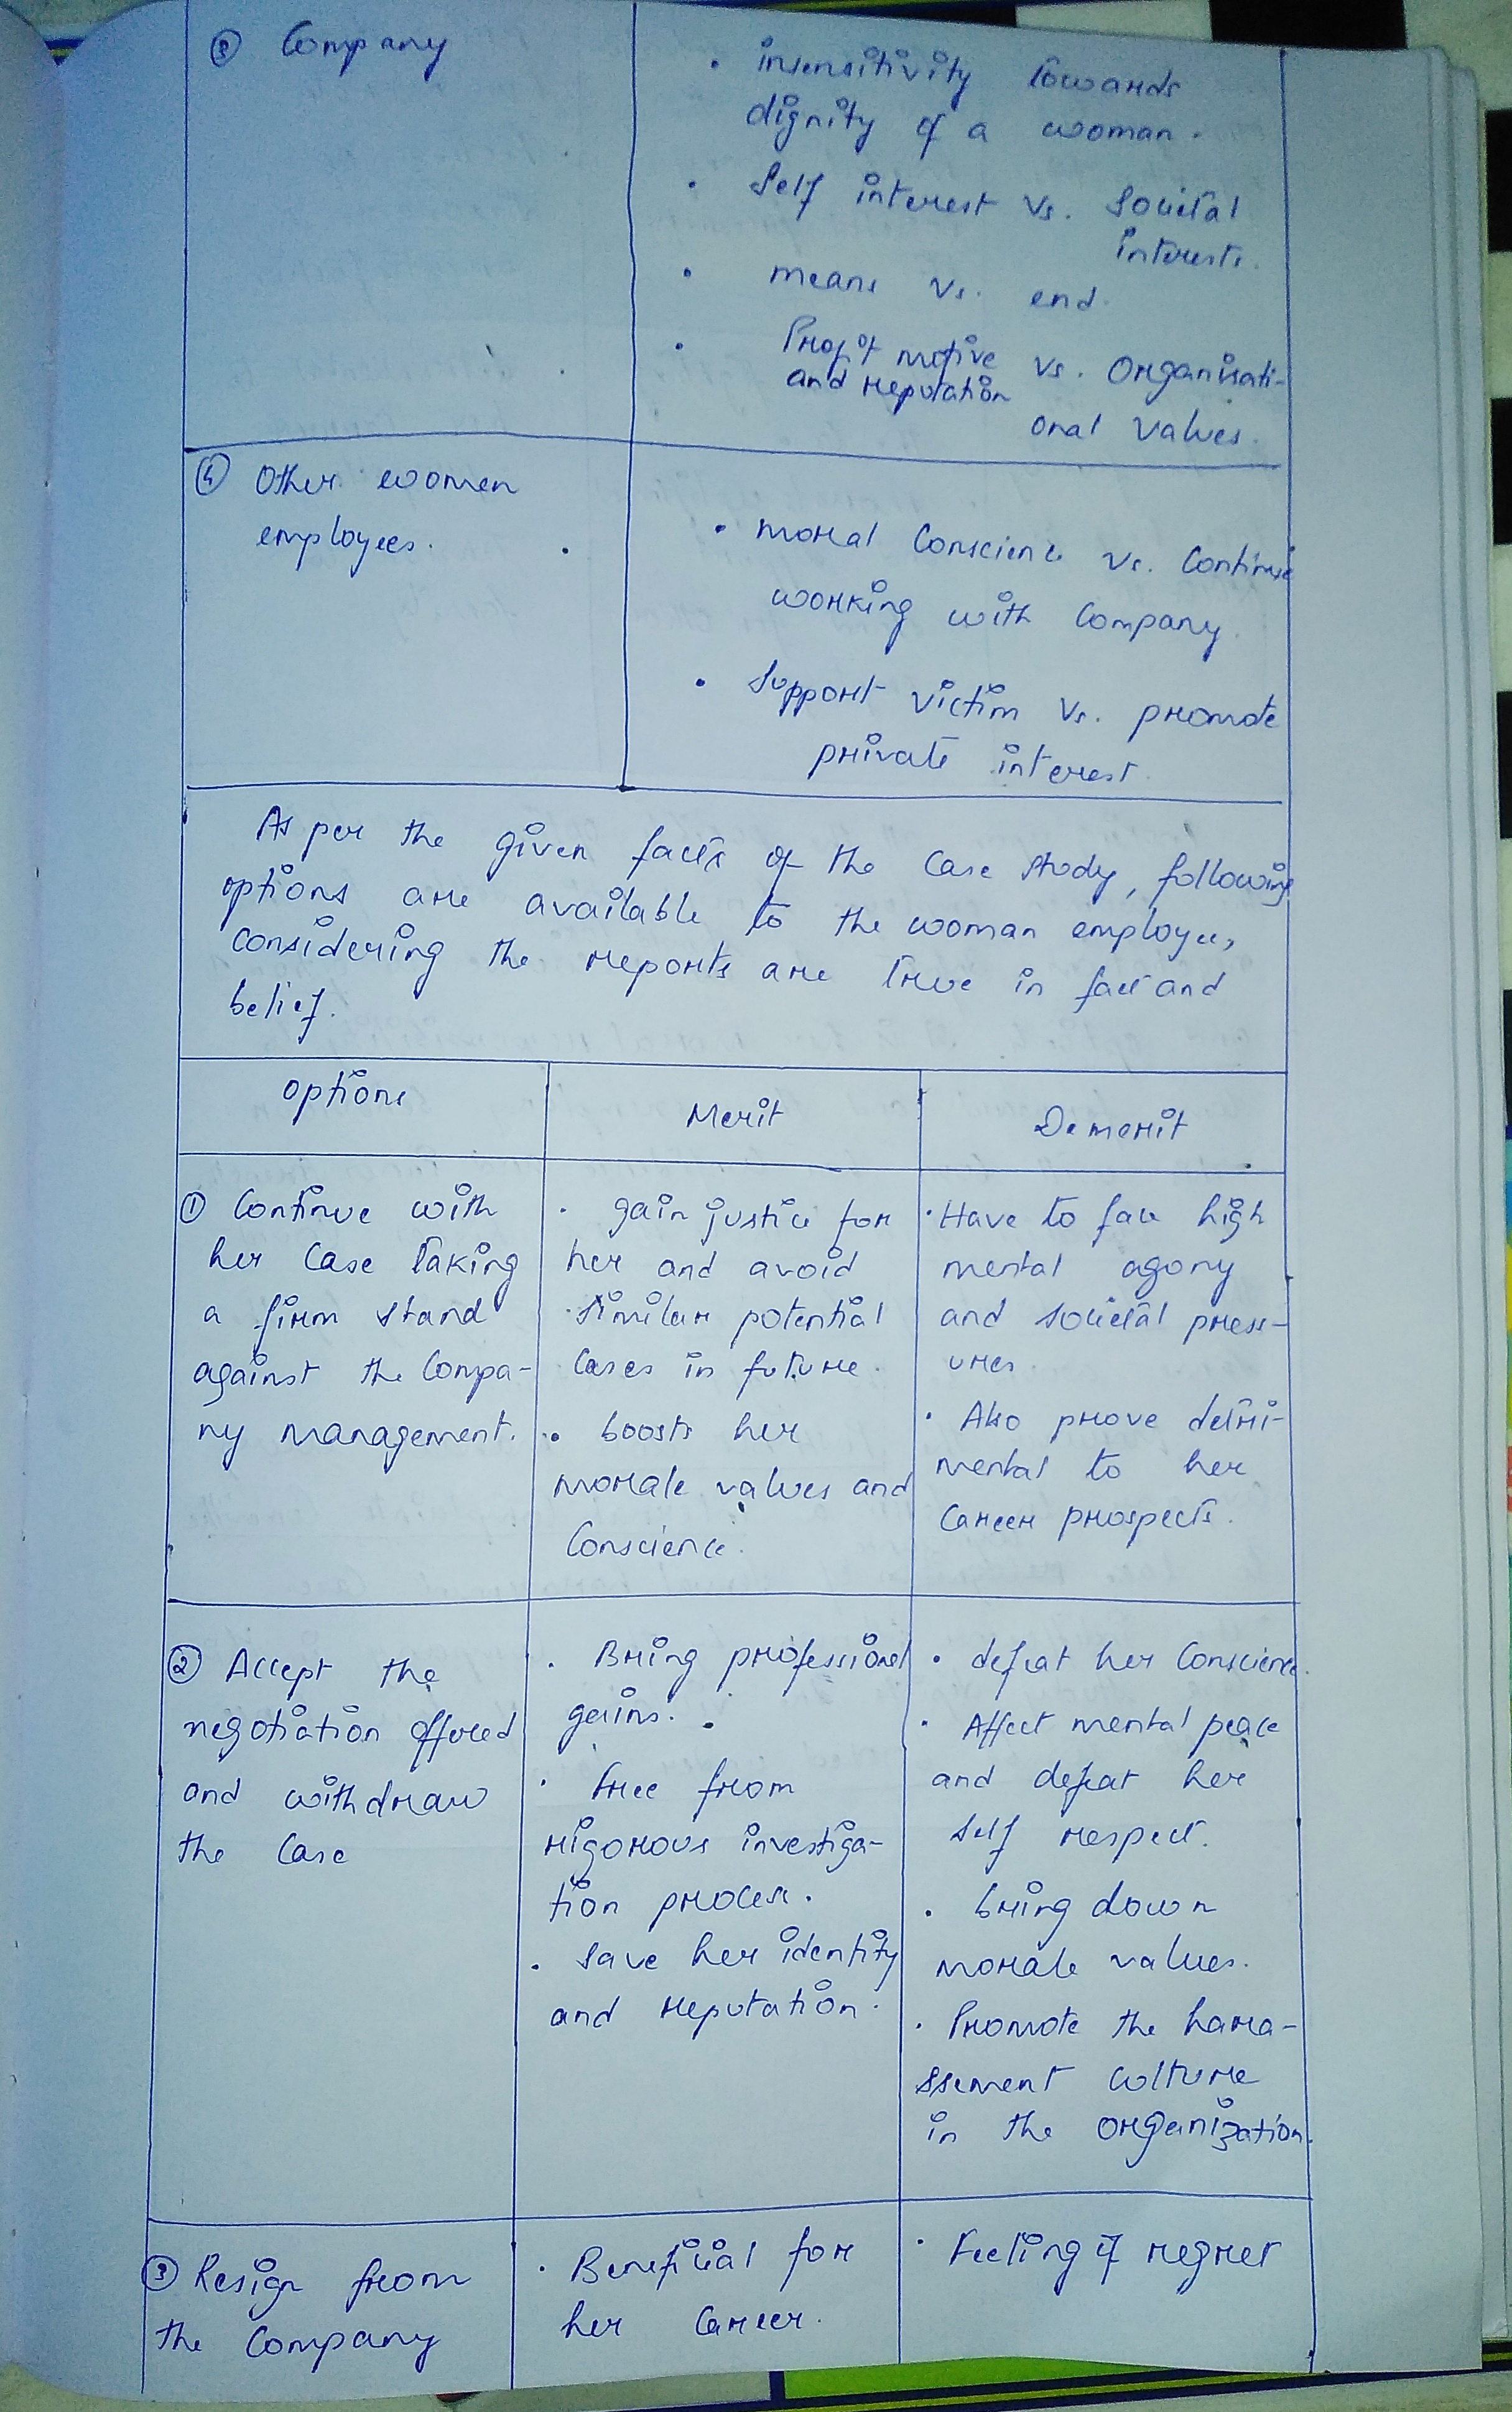 ③ Company
• insensitivity towards
dignity of a woman.
• Self interest vs. Societal
interests.
• means vs. end.
• Profit motive vs. Organisati-
and reputation
onal values.
④ Other women
employees.
• moral Conscience vs. Continue
working with Company.
• Support victim vs. promote
private interest.
As per the given facts of the Case study, following
options are available to the woman employee,
considering the reports are true in fact and
belief.
options
Merit
Demerit
① Continue with
her Case taking
a firm stand
against the Compa-
ny management.
• gain justice for
her and avoid
similar potential
Cases in future.
• boosts her
morale values and
Conscience.
• Have to face high
mental agony
and societal press-
ures.
• Also prove detri-
mental to her
Career prospects.
② Accept the
negotiation offered
and withdraw
the Case
• Bring professional
gains.
• Free from
rigorous investiga-
tion process.
• Save her identity
and reputation.
• defeat her Conscience.
• Affect mental peace
and defeat her
self respect.
• bring down
morale values.
• Promote the hara-
ssement culture
in the organization.
③ Resign from
the Company
• Beneficial for
her Career.
• Feeling of regret